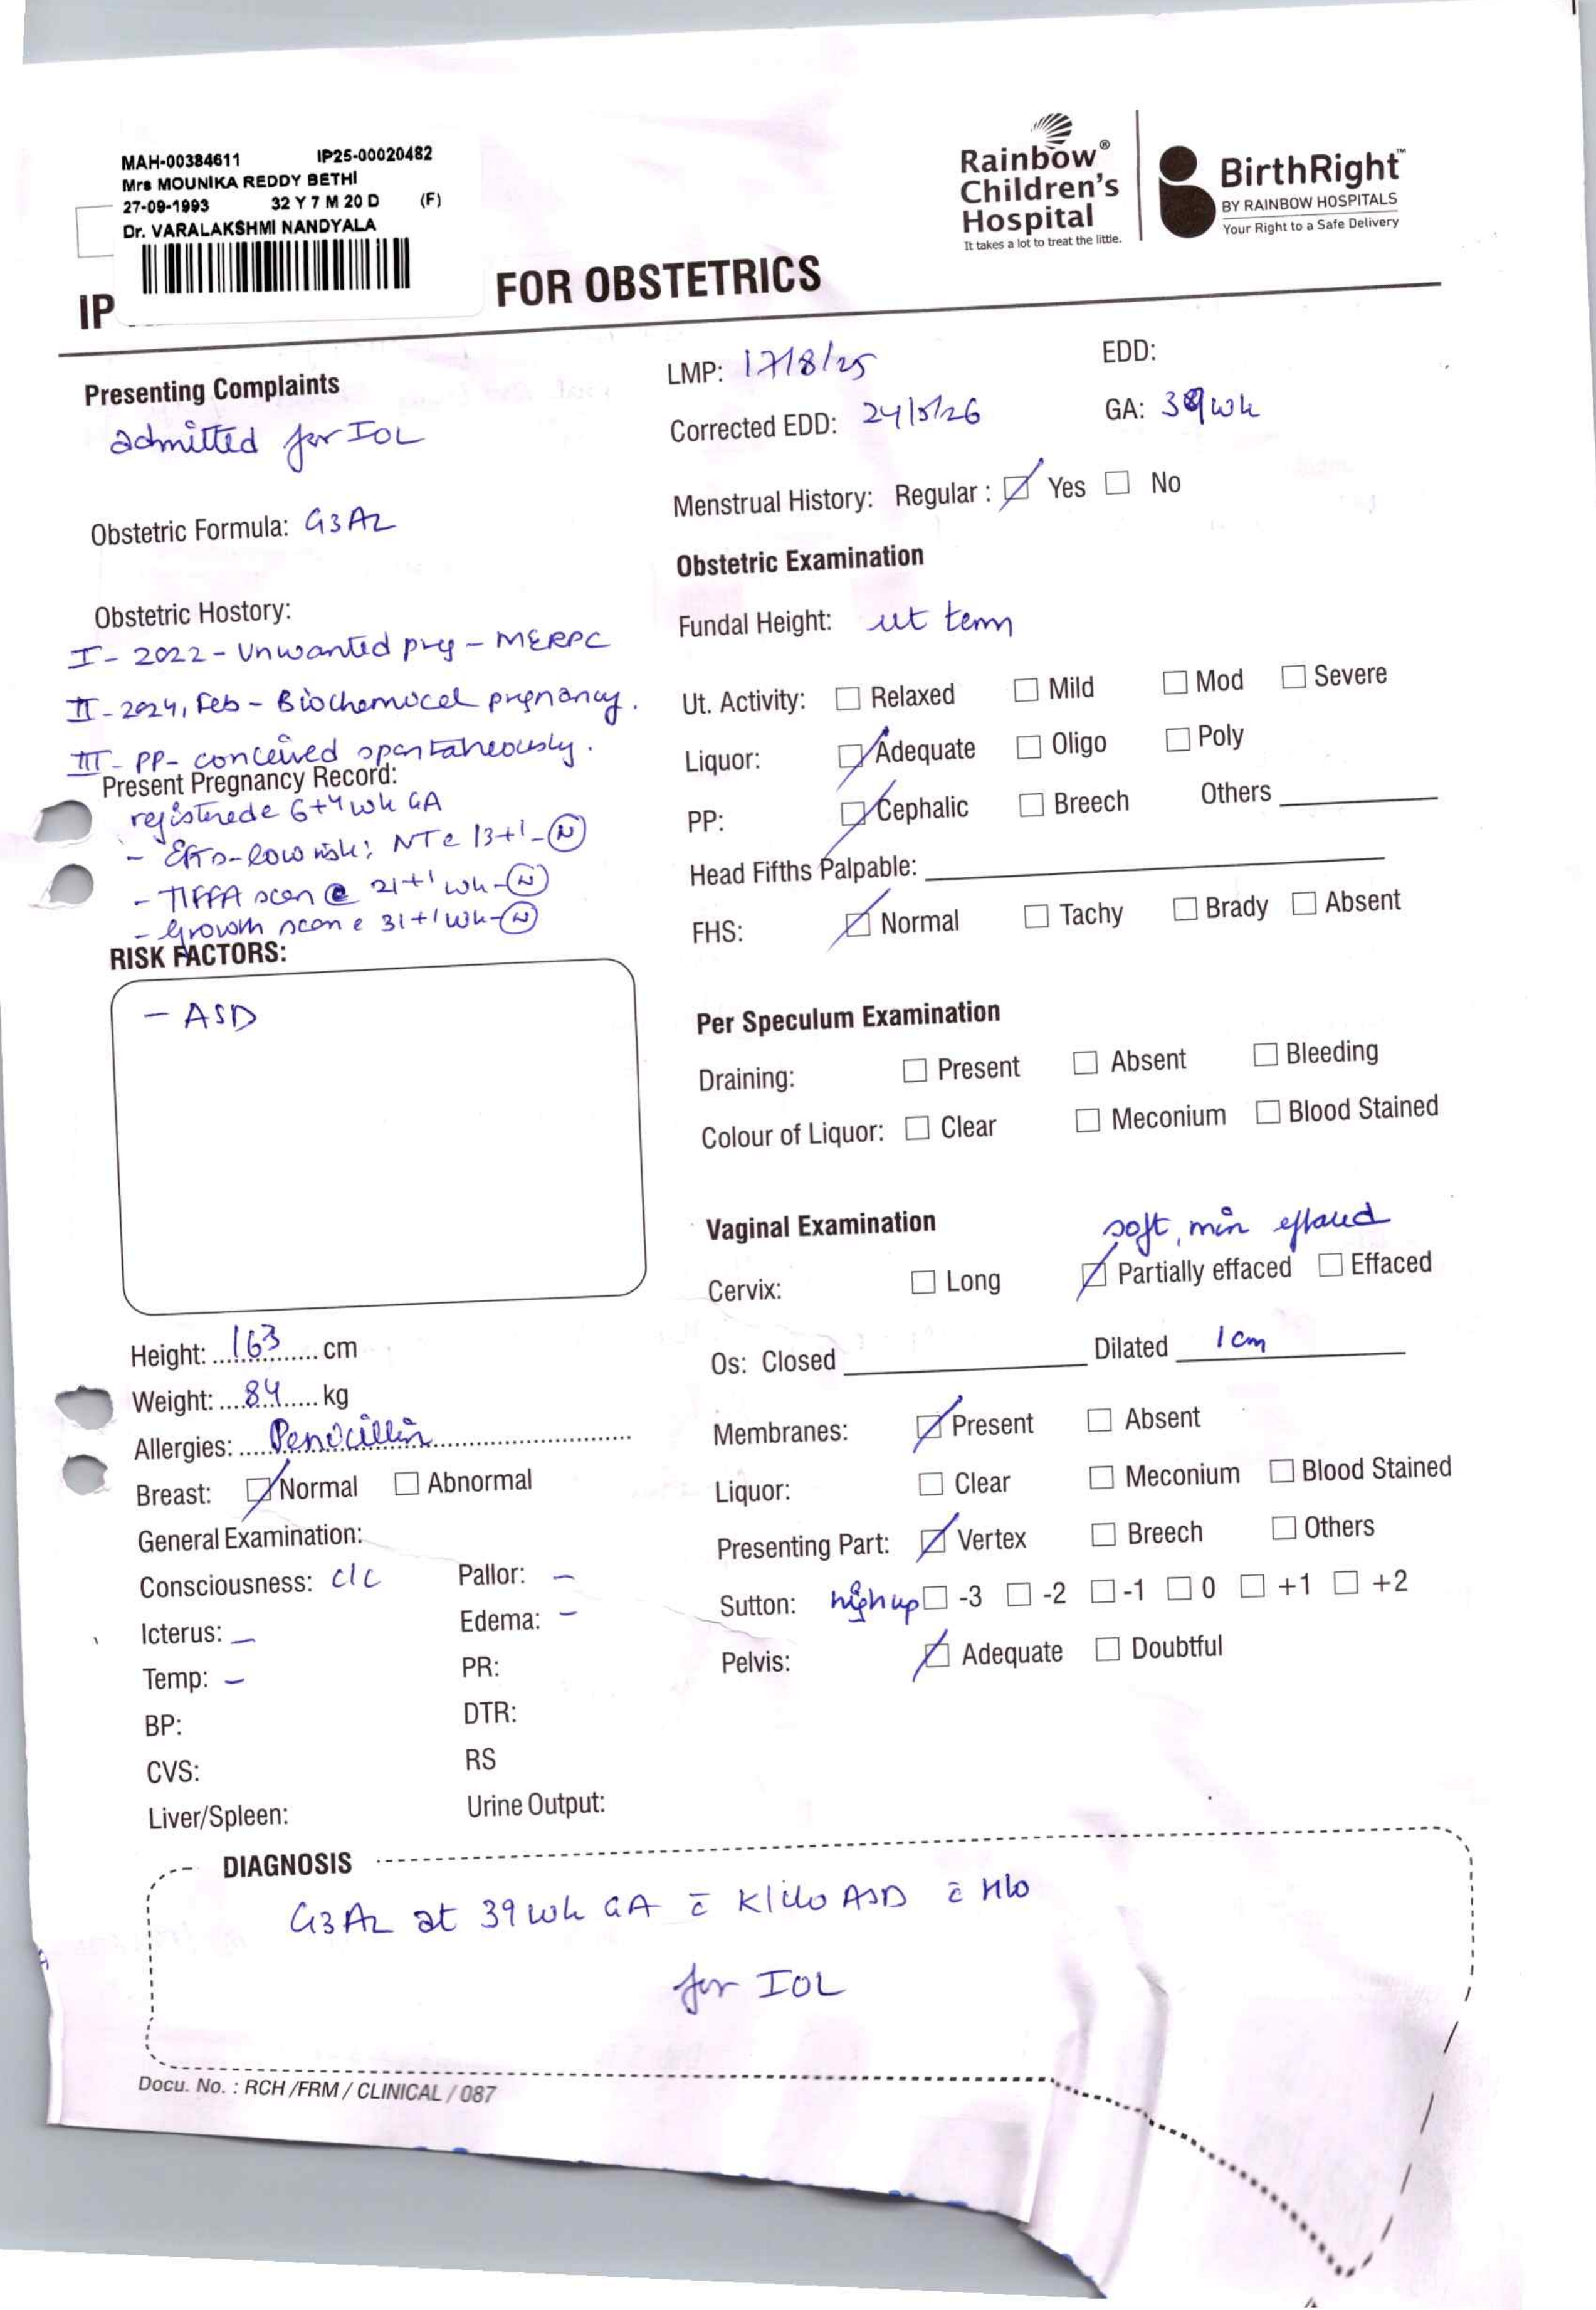 MAH-00384611 IP25-00020482
Mrs MOUNIKA REDDY BETHI
27-09-1993 32 Y 7 M 20 D (F)
Dr. VARALAKSHMI NANDYALA
Rainbow®
Children's
Hospital
It takes a lot to treat the little.
BirthRight™
BY RAINBOW HOSPITALS
Your Right to a Safe Delivery
IP FOR OBSTETRICS
Presenting Complaints
admitted for IOL
Obstetric Formula: G3A2
Obstetric Hostory:
I - 2022 - Unwanted preg - MERPC
II - 2024, Feb - Biochemical pregnancy.
III - PP - conceived spontaneously.
Present Pregnancy Record:
registered @ 6+4 wk GA
- low risk; NT @ 13+1 - (N)
- TIFFA scan @ 21+1 wk - (N)
- Growth scan @ 31+1 wk - (N)
RISK FACTORS:
- ASD
Height: 163 cm
Weight: 84 kg
Allergies: Penicillin
Breast: ☑ Normal ☐ Abnormal
General Examination:
Consciousness: c/c Pallor: -
Icterus: - Edema: -
Temp: - PR:
BP: DTR:
CVS: RS
Liver/Spleen: Urine Output:
LMP: 17/8/25 EDD:
Corrected EDD: 24/5/26 GA: 39 wk
Menstrual History: Regular : ☑ Yes ☐ No
Obstetric Examination
Fundal Height: ut term
Ut. Activity: ☐ Relaxed ☐ Mild ☐ Mod ☐ Severe
Liquor: ☑ Adequate ☐ Oligo ☐ Poly
PP: ☑ Cephalic ☐ Breech Others
Head Fifths Palpable:
FHS: ☑ Normal ☐ Tachy ☐ Brady ☐ Absent
Per Speculum Examination
Draining: ☐ Present ☐ Absent ☐ Bleeding
Colour of Liquor: ☐ Clear ☐ Meconium ☐ Blood Stained
Vaginal Examination
soft, min effaced
Cervix: ☐ Long ☑ Partially effaced ☐ Effaced
Os: Closed Dilated 1 cm
Membranes: ☑ Present ☐ Absent
Liquor: ☐ Clear ☐ Meconium ☐ Blood Stained
Presenting Part: ☑ Vertex ☐ Breech ☐ Others
Sutton: high up ☐ -3 ☐ -2 ☐ -1 ☐ 0 ☐ +1 ☐ +2
Pelvis: ☑ Adequate ☐ Doubtful
DIAGNOSIS
G3A2 at 39 wk GA c̄ K/c/o ASD c̄
for IOL
Docu. No. : RCH /FRM / CLINICAL / 087